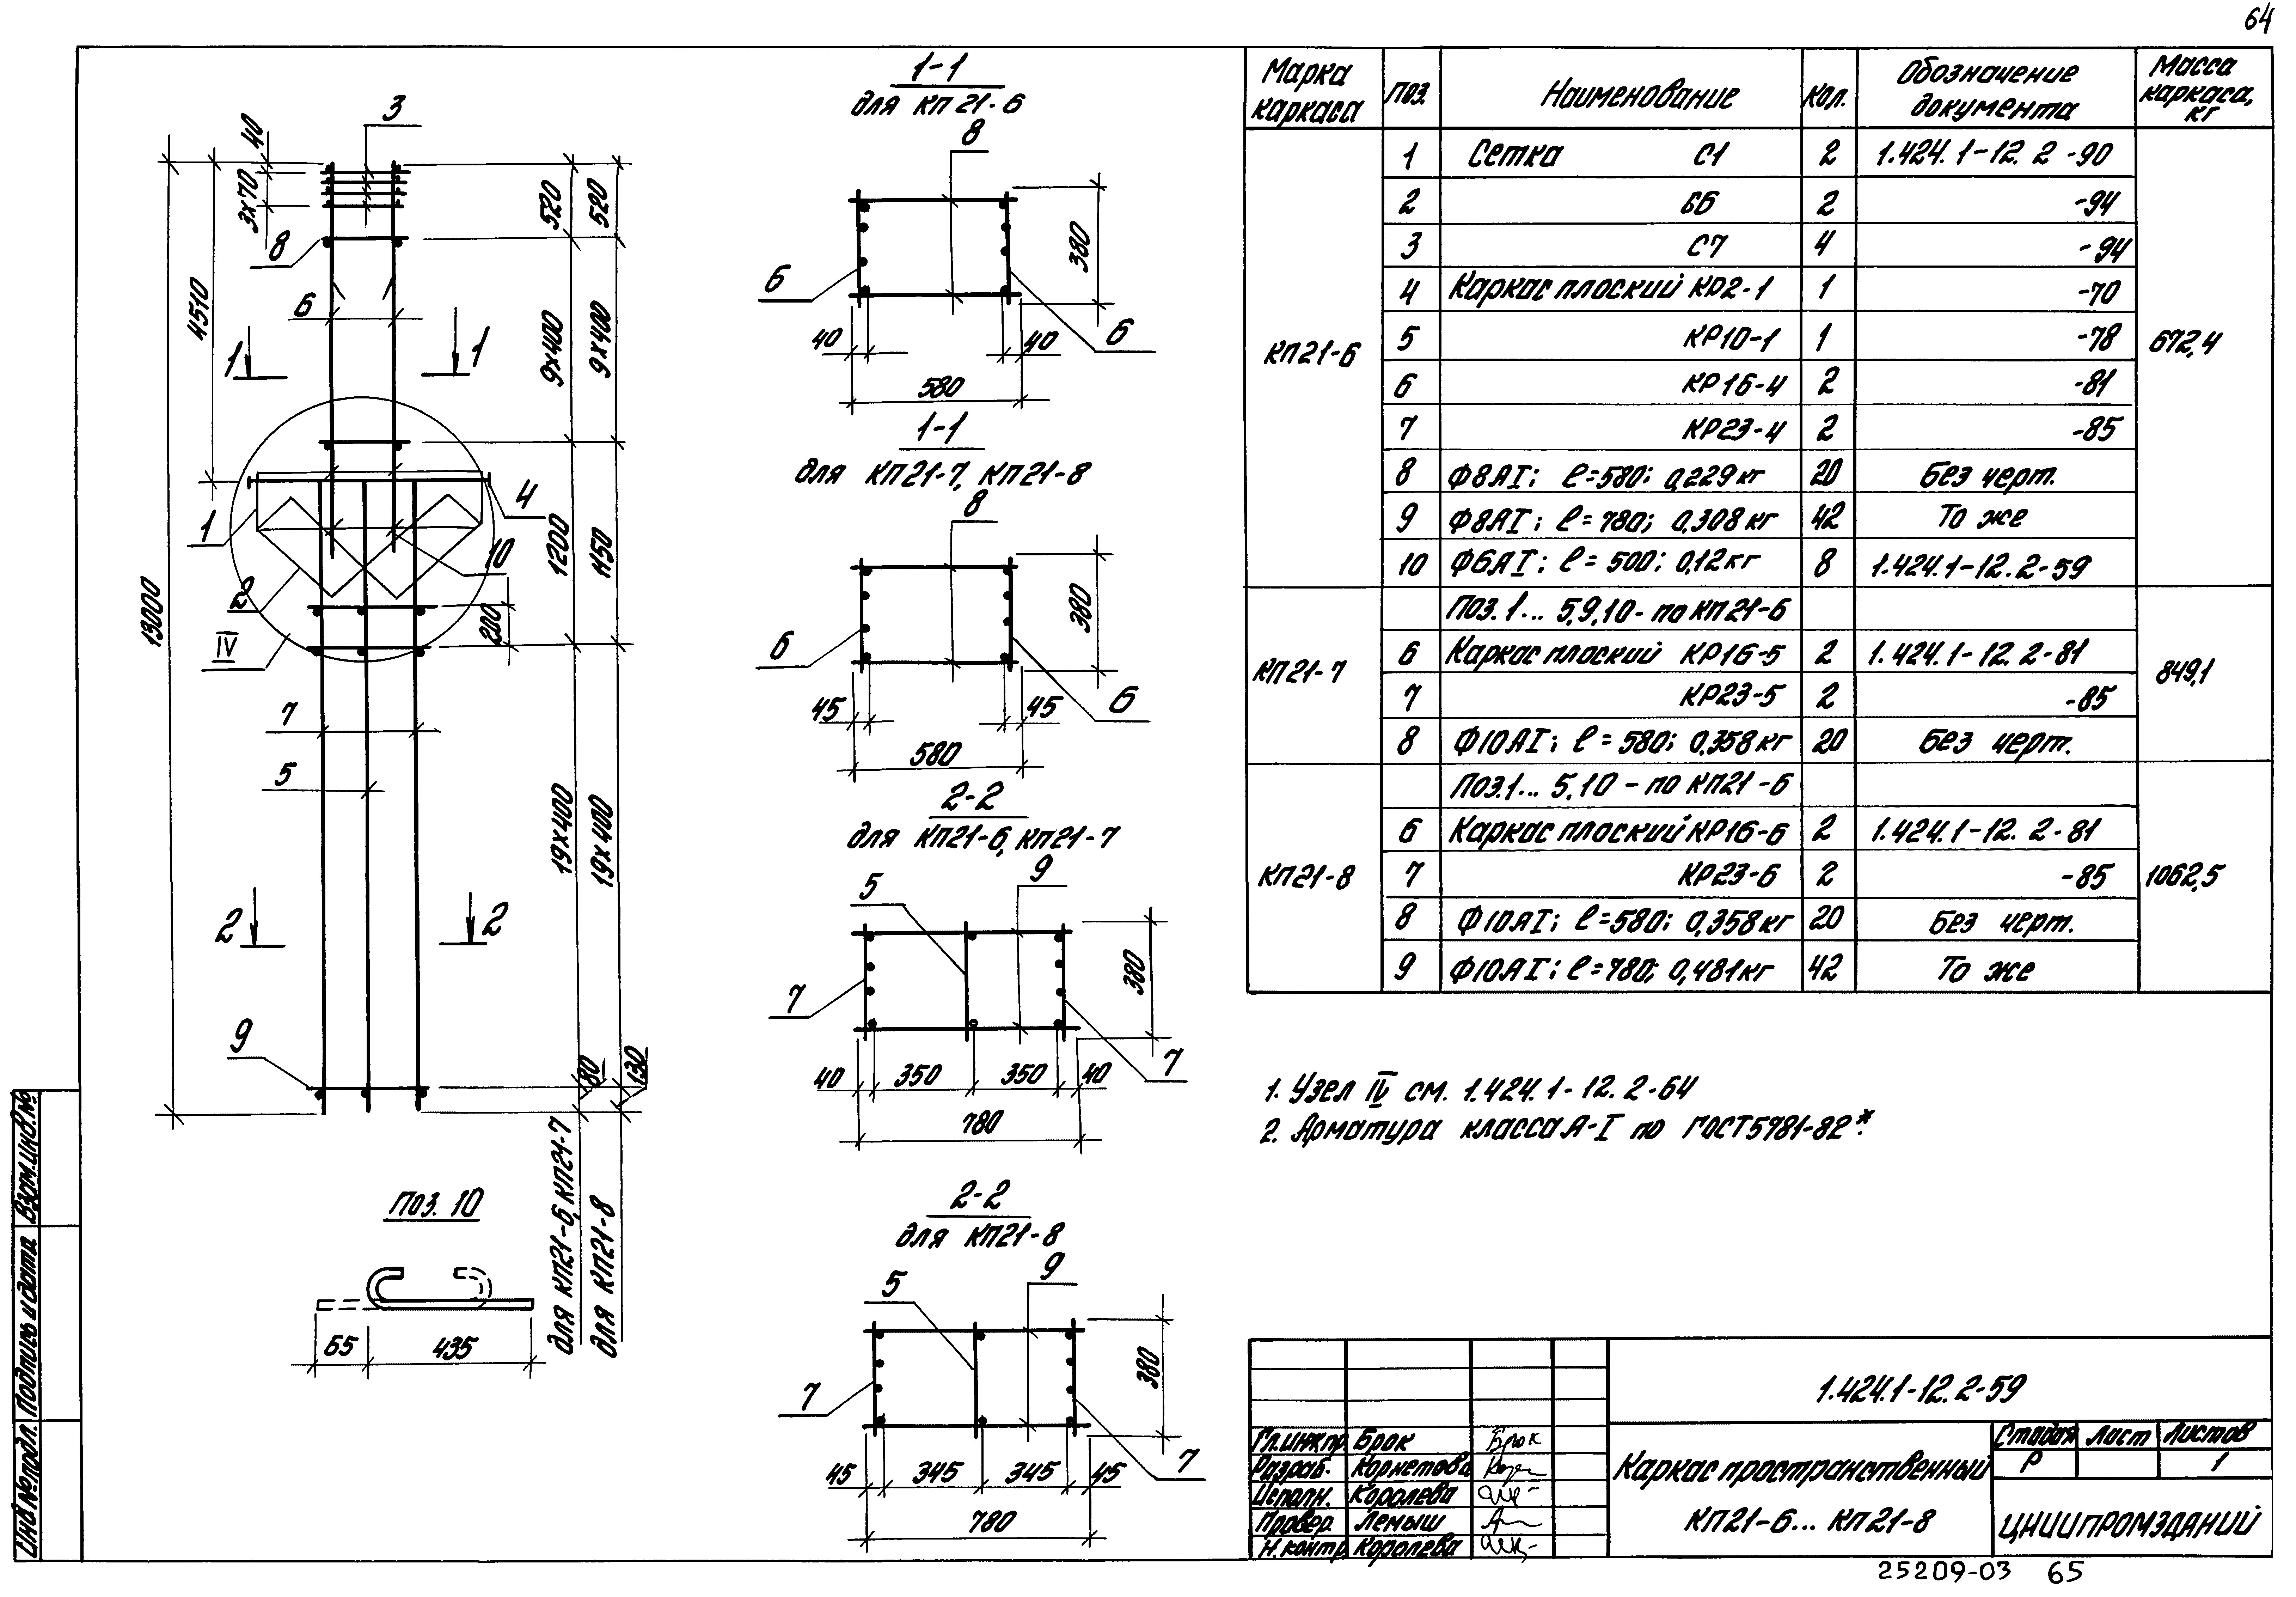 64
1-1
для КП 21-6
8
6
6
380
40
40
580
1-1
для КП21-7, КП21-8
8
6
6
380
45
45
580
2-2
для КП21-6, КП21-7
5
9
7
7
380
40
350
350
40
780
2-2
для КП21-8
5
9
7
7
380
45
345
345
45
780
3
40
3х70
8
6
4510
1
1
4
1
10
2
IV
200
13000
7
5
2
2
9
520
520
9х400
9х400
1200
1150
19х400
19х400
80
130
для КП21-6, КП21-7
для КП21-8
Поз. 10
65
435
Марка каркаса
Поз.
Наименование
Кол.
Обозначение документа
Масса каркаса, кг
КП21-6
672,4
1 Сетка С1 2 1.424.1-12.2-90
2 С6 2 -94
3 С7 4 -94
4 Каркас плоский КР2-1 1 -70
5 КР10-1 1 -78
6 КР16-4 2 -81
7 КР23-4 2 -85
8 Ф8АI; ℓ=580; 0,229кг 20 Без черт.
9 Ф8АI; ℓ=780; 0,308кг 42 То же
10 Ф6АI; ℓ=500; 0,12кг 8 1.424.1-12.2-59
КП21-7
849,1
Поз. 1... 5,9,10- по КП21-6
6 Каркас плоский КР16-5 2 1.424.1-12.2-81
7 КР23-5 2 -85
8 Ф10АI; ℓ=580; 0,358кг 20 Без черт.
КП21-8
1062,5
Поз.1... 5,10 - по КП21-6
6 Каркас плоский КР16-6 2 1.424.1-12.2-81
7 КР23-6 2 -85
8 Ф10АI; ℓ=580; 0,358кг 20 Без черт.
9 Ф10АI; ℓ=780; 0,481кг 42 То же
1. Узел IV см. 1.424.1-12.2-64
2. Арматура класса А-I по ГОСТ5781-82*.
1.424.1-12.2-59
Гл.инж.пр. Брок
Разраб. Корметова
Исполн. Королева
Провер. Лемыш
Н.контр. Королева
Каркас пространственный
КП21-6... КП21-8
Стадия Лист Листов
Р 1
ЦНИИПРОМЗДАНИЙ
Инв № подл. Подпись и дата Взам.инв.№
25209-03 65